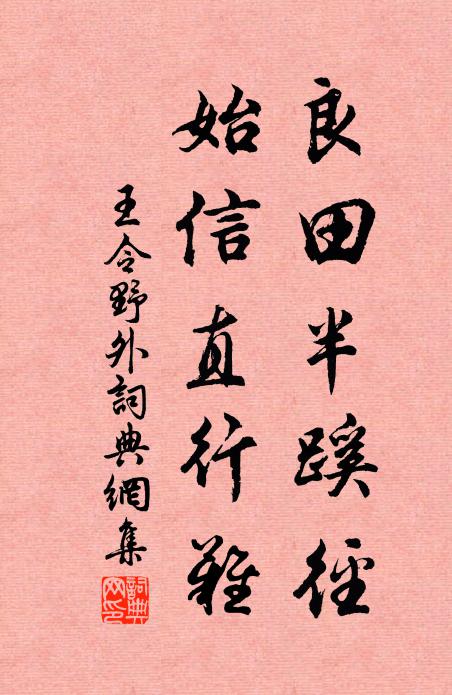 良田半蹊徑
始信直行難
王令野外詞典網集
詞典網印